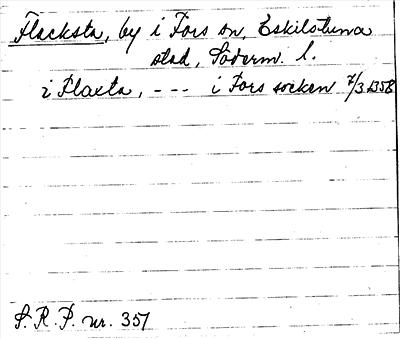 Flacksta, by i Fors sn, Eskilstuna
stad, Söderm. l.
i Flaxta, --- i Fors socken 7/3 1358
S. R. P. nr. 351